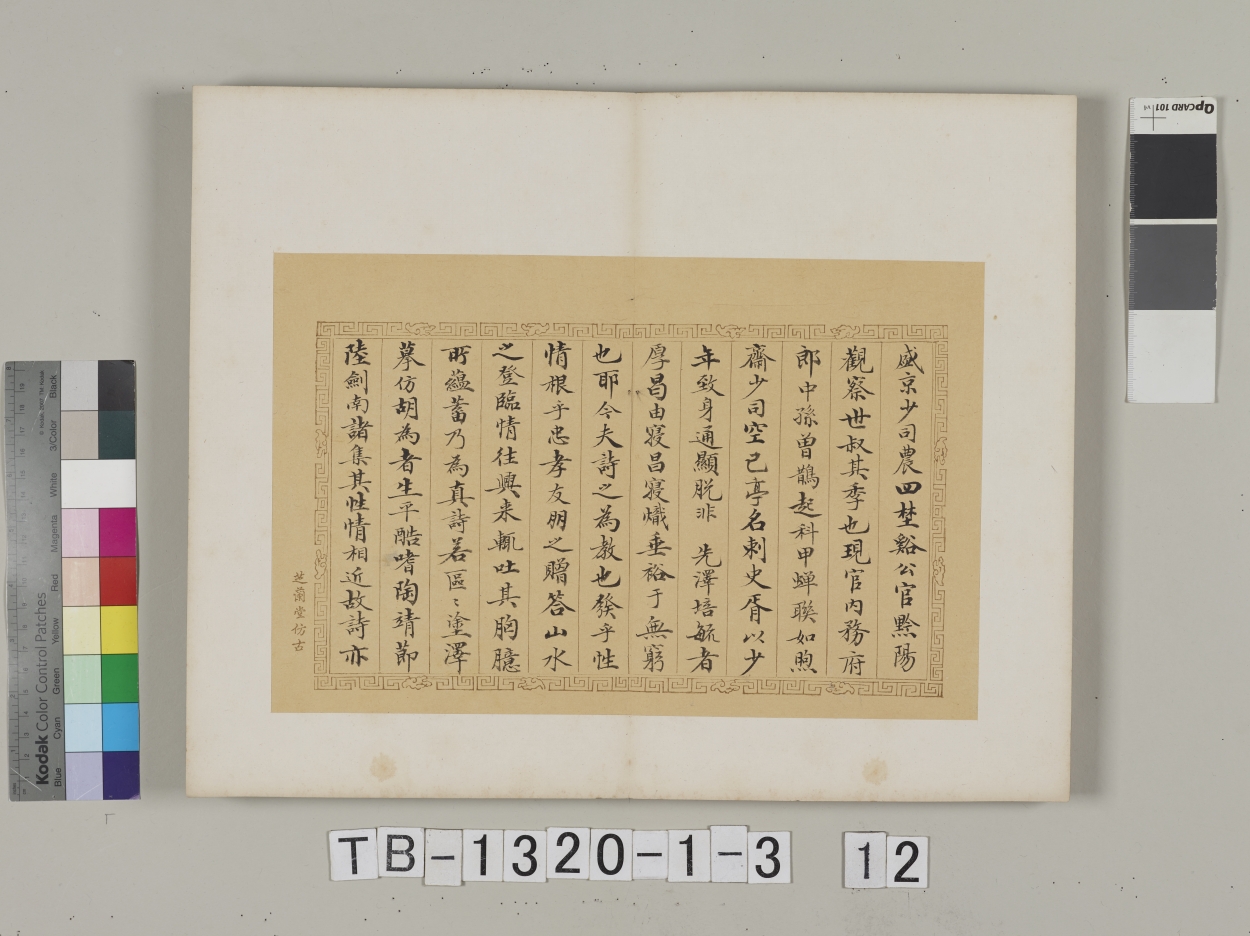 盛京少司農四埜谿公官黔陽
觀察世叔其季也現官內務府
郎中孫曾鵲起科甲蟬聯如煦
齋少司空已亭名刺史胥以少
年致身通顯脱非 先澤培毓者
厚昌由寖昌寖熾垂裕于無窮
也耶今夫詩之為教也發乎性
情根乎忠孝友朋之贈答山水
之登臨情往興来輒吐其胸臆
所蘊蓄乃為真詩若區〻塗澤
摹仿胡為者生平酷嗜陶靖節
陸劍南諸集其性情相近故詩亦
芝蘭堂仿古
Kodak Color Control Patches
© Kodak, 2007 TM: Kodak
Blue
Cyan
Green
Yellow
Red
Magenta
White
3/Color
Black
QpCARD 101
TB-1320-1-3 12